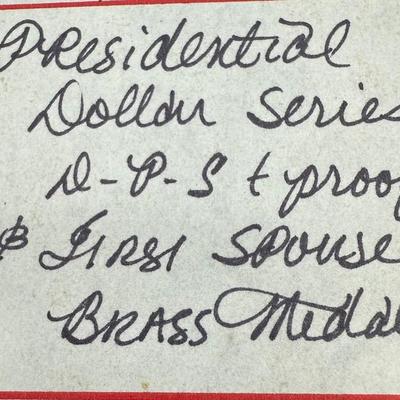 Presidential
Dollar Series
D-P-S + proof
& First Spouse
Brass Medal